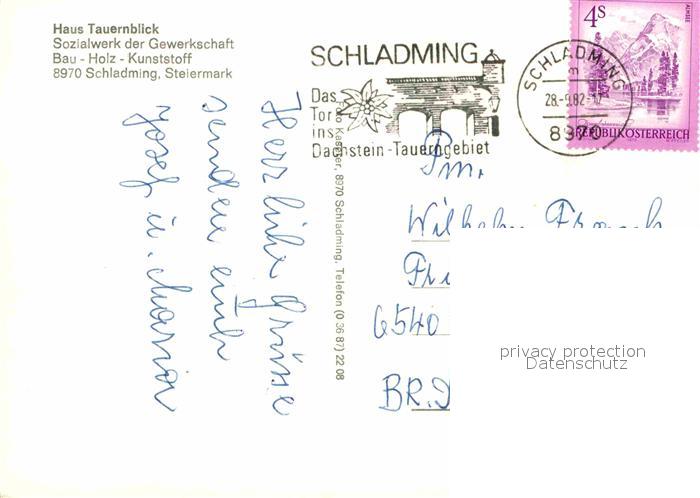 Haus Tauernblick
Sozialwerk der Gewerkschaft
Bau - Holz - Kunststoff
8970 Schladming, Steiermark
Herzliche Grüsse
senden euch
Josef u. Marion
8970 Schladming, Telefon (0 36 87) 22 08
SCHLADMING
Das
Tor
ins
Dachstein-Tauerngebiet
SCHLADMING
28.-9.82-17
8970
4S
ALMSEE
REPUBLIK ÖSTERREICH
Fm.
Wilhelm
6540
BRD
privacy protection
Datenschutz